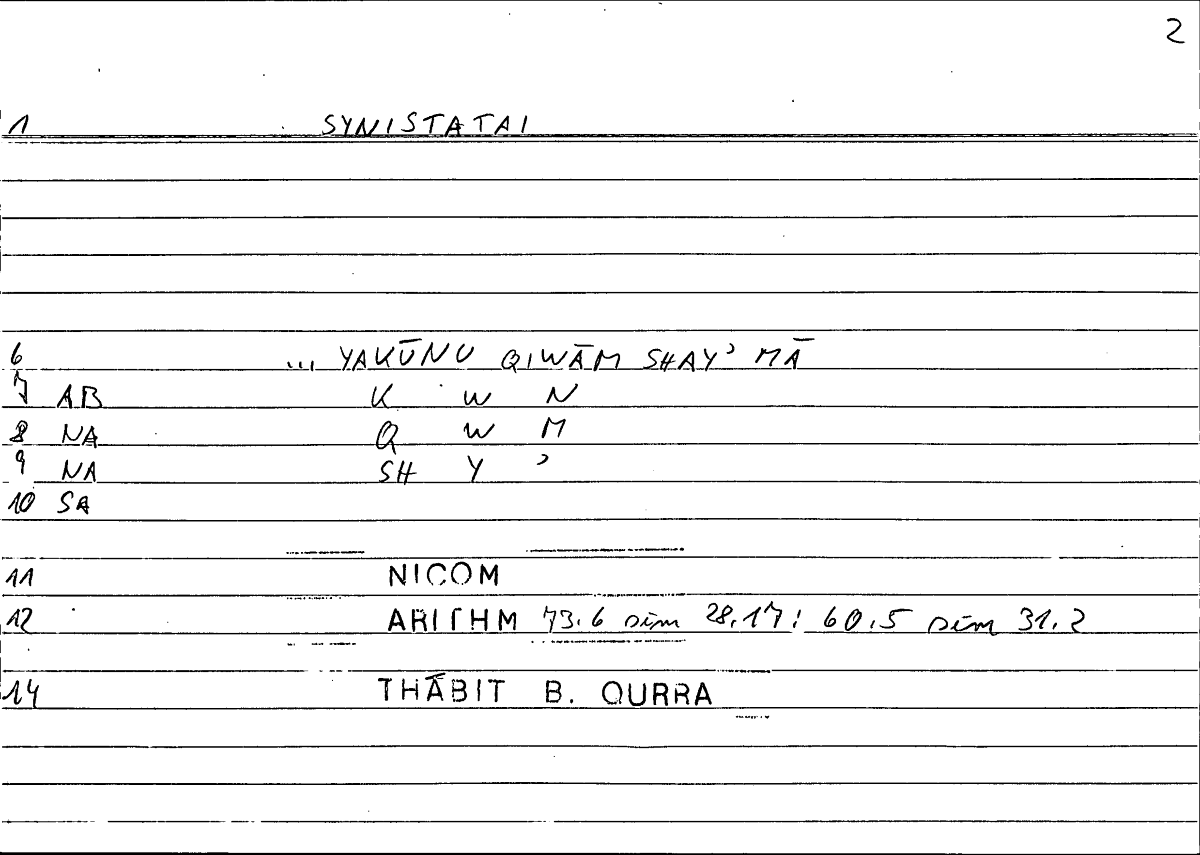 2
1 SYNISTATAI
6 ... YAKŪNU QIWĀM SHAY' MĀ
7 AB K W N
8 NA Q W M
9 NA SH Y '
10 SA
11 NICOM
12 ARITHM 73.6 sim 28.17; 60.5 sim 31.2
14 THĀBIT B. QURRA